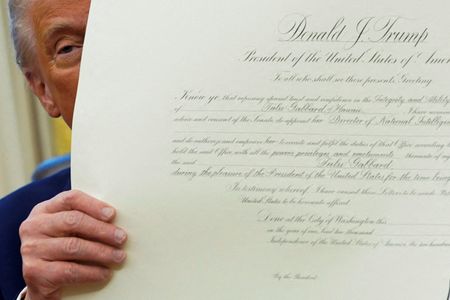 Donald J. Trump
President of the United States of Ameri
To all who shall see these presents, Greeting
Know ye, that reposing special trust and confidence in the Integrity and Ability
of Tulsi Gabbard of Hawaii I have
advice and consent of the Senate do appoint her Director of National Intelligen
and do authorize and empower her to execute and fulfil the duties of that Office according to
hold the said Office with all the powers, privileges and emoluments thereunto of righ
the said Tulsi Gabbard,
during the pleasure of the President of the United States for the time being
In testimony whereof, I have caused these Letters to be made Pat
United States to be hereunto affixed
Done at the City of Washington this
in the year of our Lord two thousand
Independence of the United States of America the two hundred
By the President